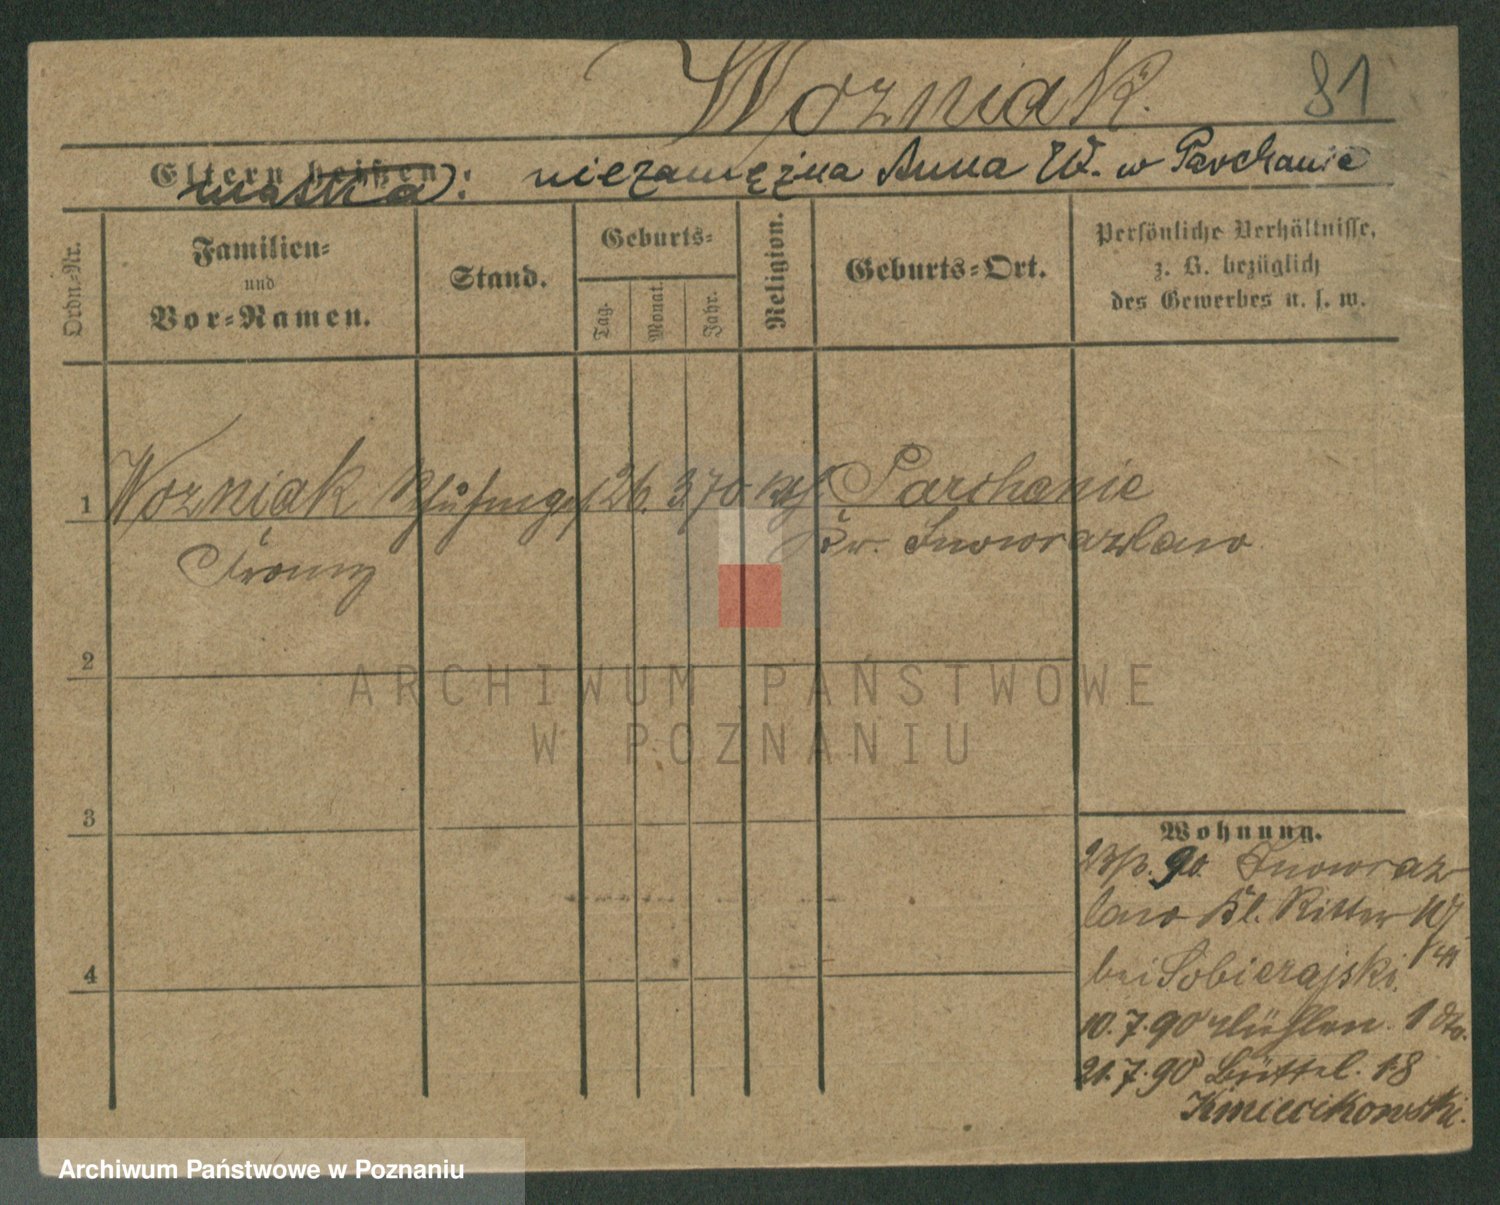 Wozniak.
81
Eltern heißen:
matka: niezamężna Anna W. w Parchanie
Ordn.-Nr.
Familien-
und
Vor-Namen.
Stand.
Geburts-
Tag.
Monat.
Jahr.
Religion.
Geburts-Ort.
Persönliche Verhältnisse,
z. B. bezüglich
des Gewerbes u. s. w.
1 Wozniak Schuhmges. 26. 3. 70 kath. Parchanie
Franz Kr. Inowrazlaw
2
3
4
Wohnung.
23/3. 90. Inowraz
law Kl. Ritter
bei Sobierajski.
10. 7. 90 Mühlen. 1 dto.
21. 7. 90 Büttel. 18
Kmiecikowski.
ARCHIWUM PAŃSTWOWE
W POZNANIU
Archiwum Państwowe w Poznaniu